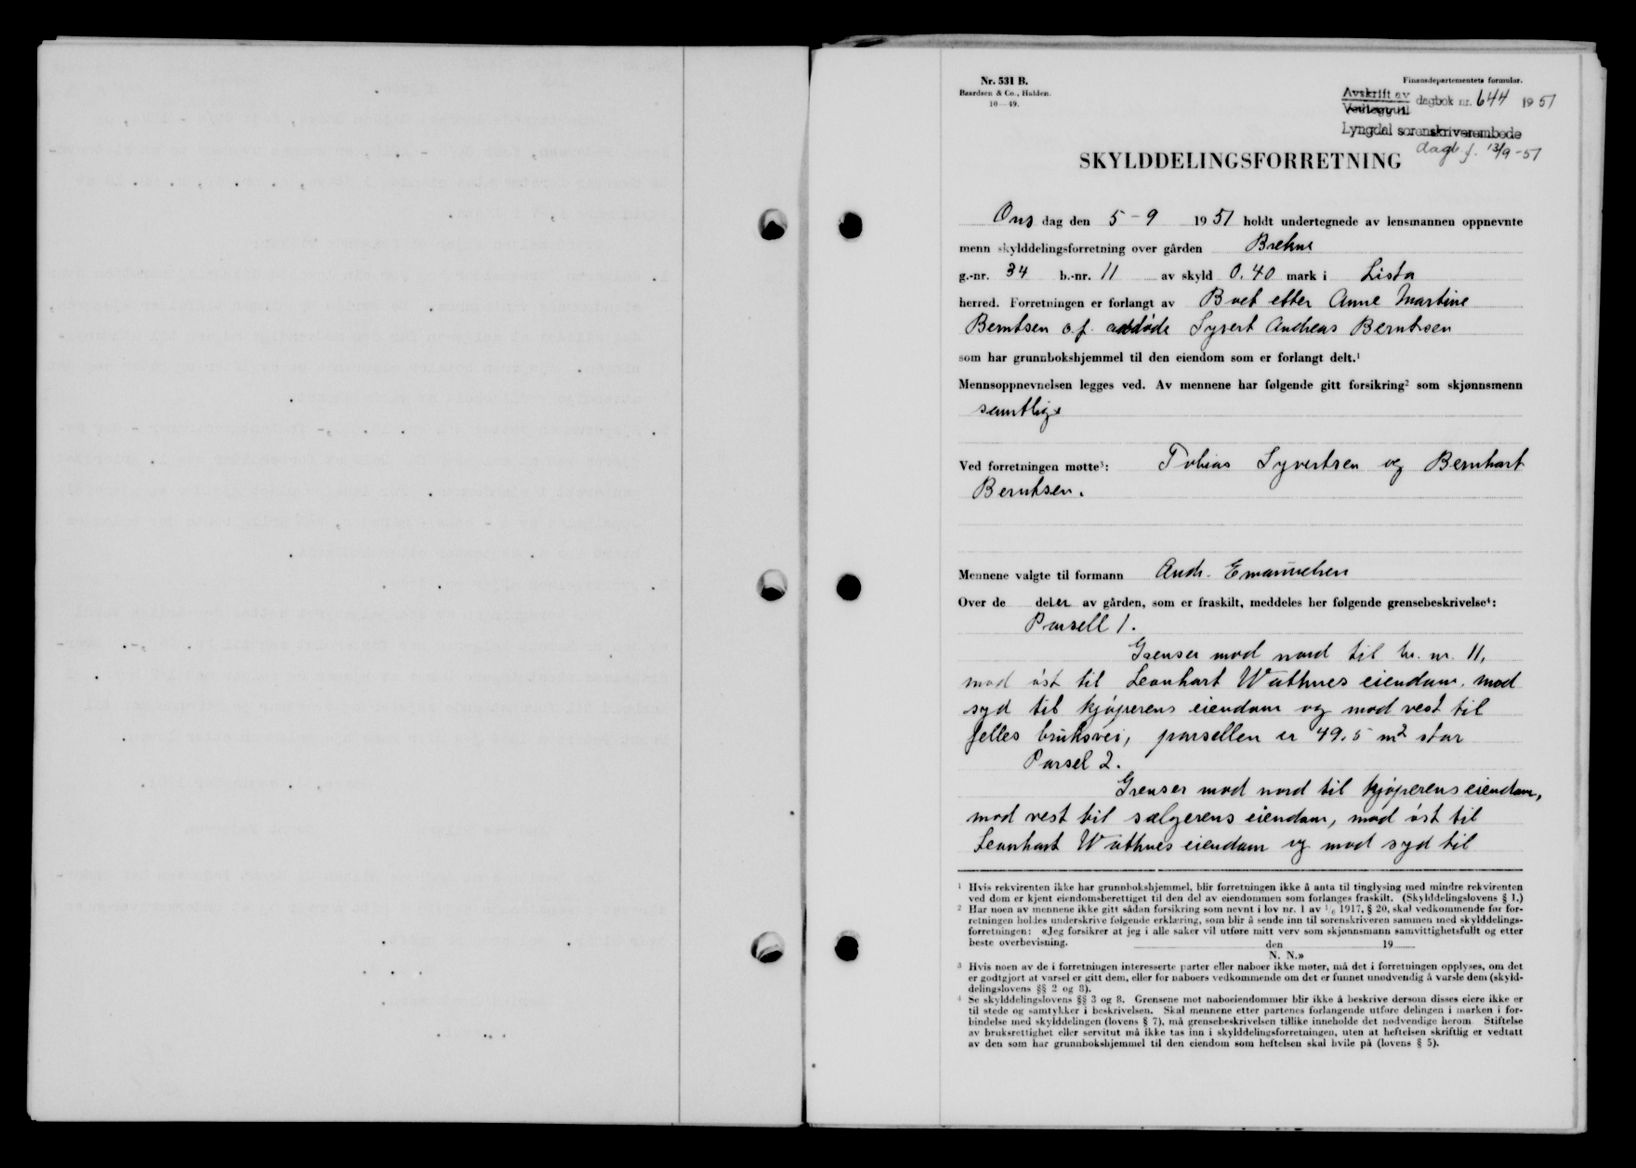 Nr. 531 B.
Baardsen & Co., Halden.
10—49.
Finansdepartementets formular.
Avskrift av
Vedlegg til
dagbok nr. 644 1951
Lyngdal sorenskriverembede
dagb f. 13/9-51
SKYLDDELINGSFORRETNING
Ons dag den 5-9 1951 holdt undertegnede av lensmannen oppnevnte
menn skylddelingsforretning over gården Brekne
g.-nr. 34 b.-nr. 11 av skyld 0.40 mark i Lista
herred. Forretningen er forlangt av Boet etter Anne Martine
Berntsen o.f. avdøde Syvert Andreas Berntsen
som har grunnbokshjemmel til den eiendom som er forlangt delt.¹
Mennsoppnevnelsen legges ved. Av mennene har følgende gitt forsikring² som skjønnsmenn
samtlige
Ved forretningen møtte³: Tobias Syvertsen og Bernhart
Berntsen.
Mennene valgte til formann Andr. Emanuelsen
Over de deler av gården, som er fraskilt, meddeles her følgende grensebeskrivelse⁴:
Parsell 1.
Grenser mod nord til br. nr. 11,
mod øst til Leonhart Wathnes eiendom, mod
syd til kjøperens eiendom og mod vest til
felles bruksvei, parsellen er 49,5 m² stor
Parsel 2.
Grenser mod nord til kjøperens eiendom,
mod vest til sælgerens eiendom, mod øst til
Leonhart Wathnes eiendom og mod syd til
¹ Hvis rekvirenten ikke har grunnbokshjemmel, blir forretningen ikke å anta til tinglysing med mindre rekvirenten
ved dom er kjent eiendomsberettiget til den del av eiendommen som forlanges fraskilt. (Skylddelingslovens § 1.)
² Har noen av mennene ikke gitt sådan forsikring som nevnt i lov nr. 1 av 1/6 1917, § 20, skal vedkommende før for-
retningen holdes underskrive følgende erklæring, som blir å sende inn til sorenskriveren sammen med skylddelings-
forretningen: «Jeg forsikrer at jeg i alle saker vil utføre mitt verv som skjønnsmann samvittighetsfullt og etter
beste overbevisning. den 19
N. N.»
³ Hvis noen av de i forretningen interesserte parter eller naboer ikke møter, må det i forretningen opplyses, om det
er godtgjort at varsel er gitt dem, eller for naboers vedkommende om det er funnet unødvendig å varsle dem (skyld-
delingslovens §§ 2 og 8).
⁴ Se skylddelingslovens §§ 3 og 8. Grensene mot naboeiendommer blir ikke å beskrive dersom disses eiere ikke er
til stede og samtykker i beskrivelsen. Skal mennene etter partenes forlangende utføre delingen i marken i for-
bindelse med skylddelingen (lovens § 7), må grensebeskrivelsen tillike inneholde det nødvendige herom. Stiftelse
av bruksrettighet eller servitut må ikke tas inn i skylddelingsforretningen, uten at heftelsen skriftlig er vedtatt
av den som har grunnbokshjemmel til den eiendom som heftelsen skal hvile på (lovens § 5).